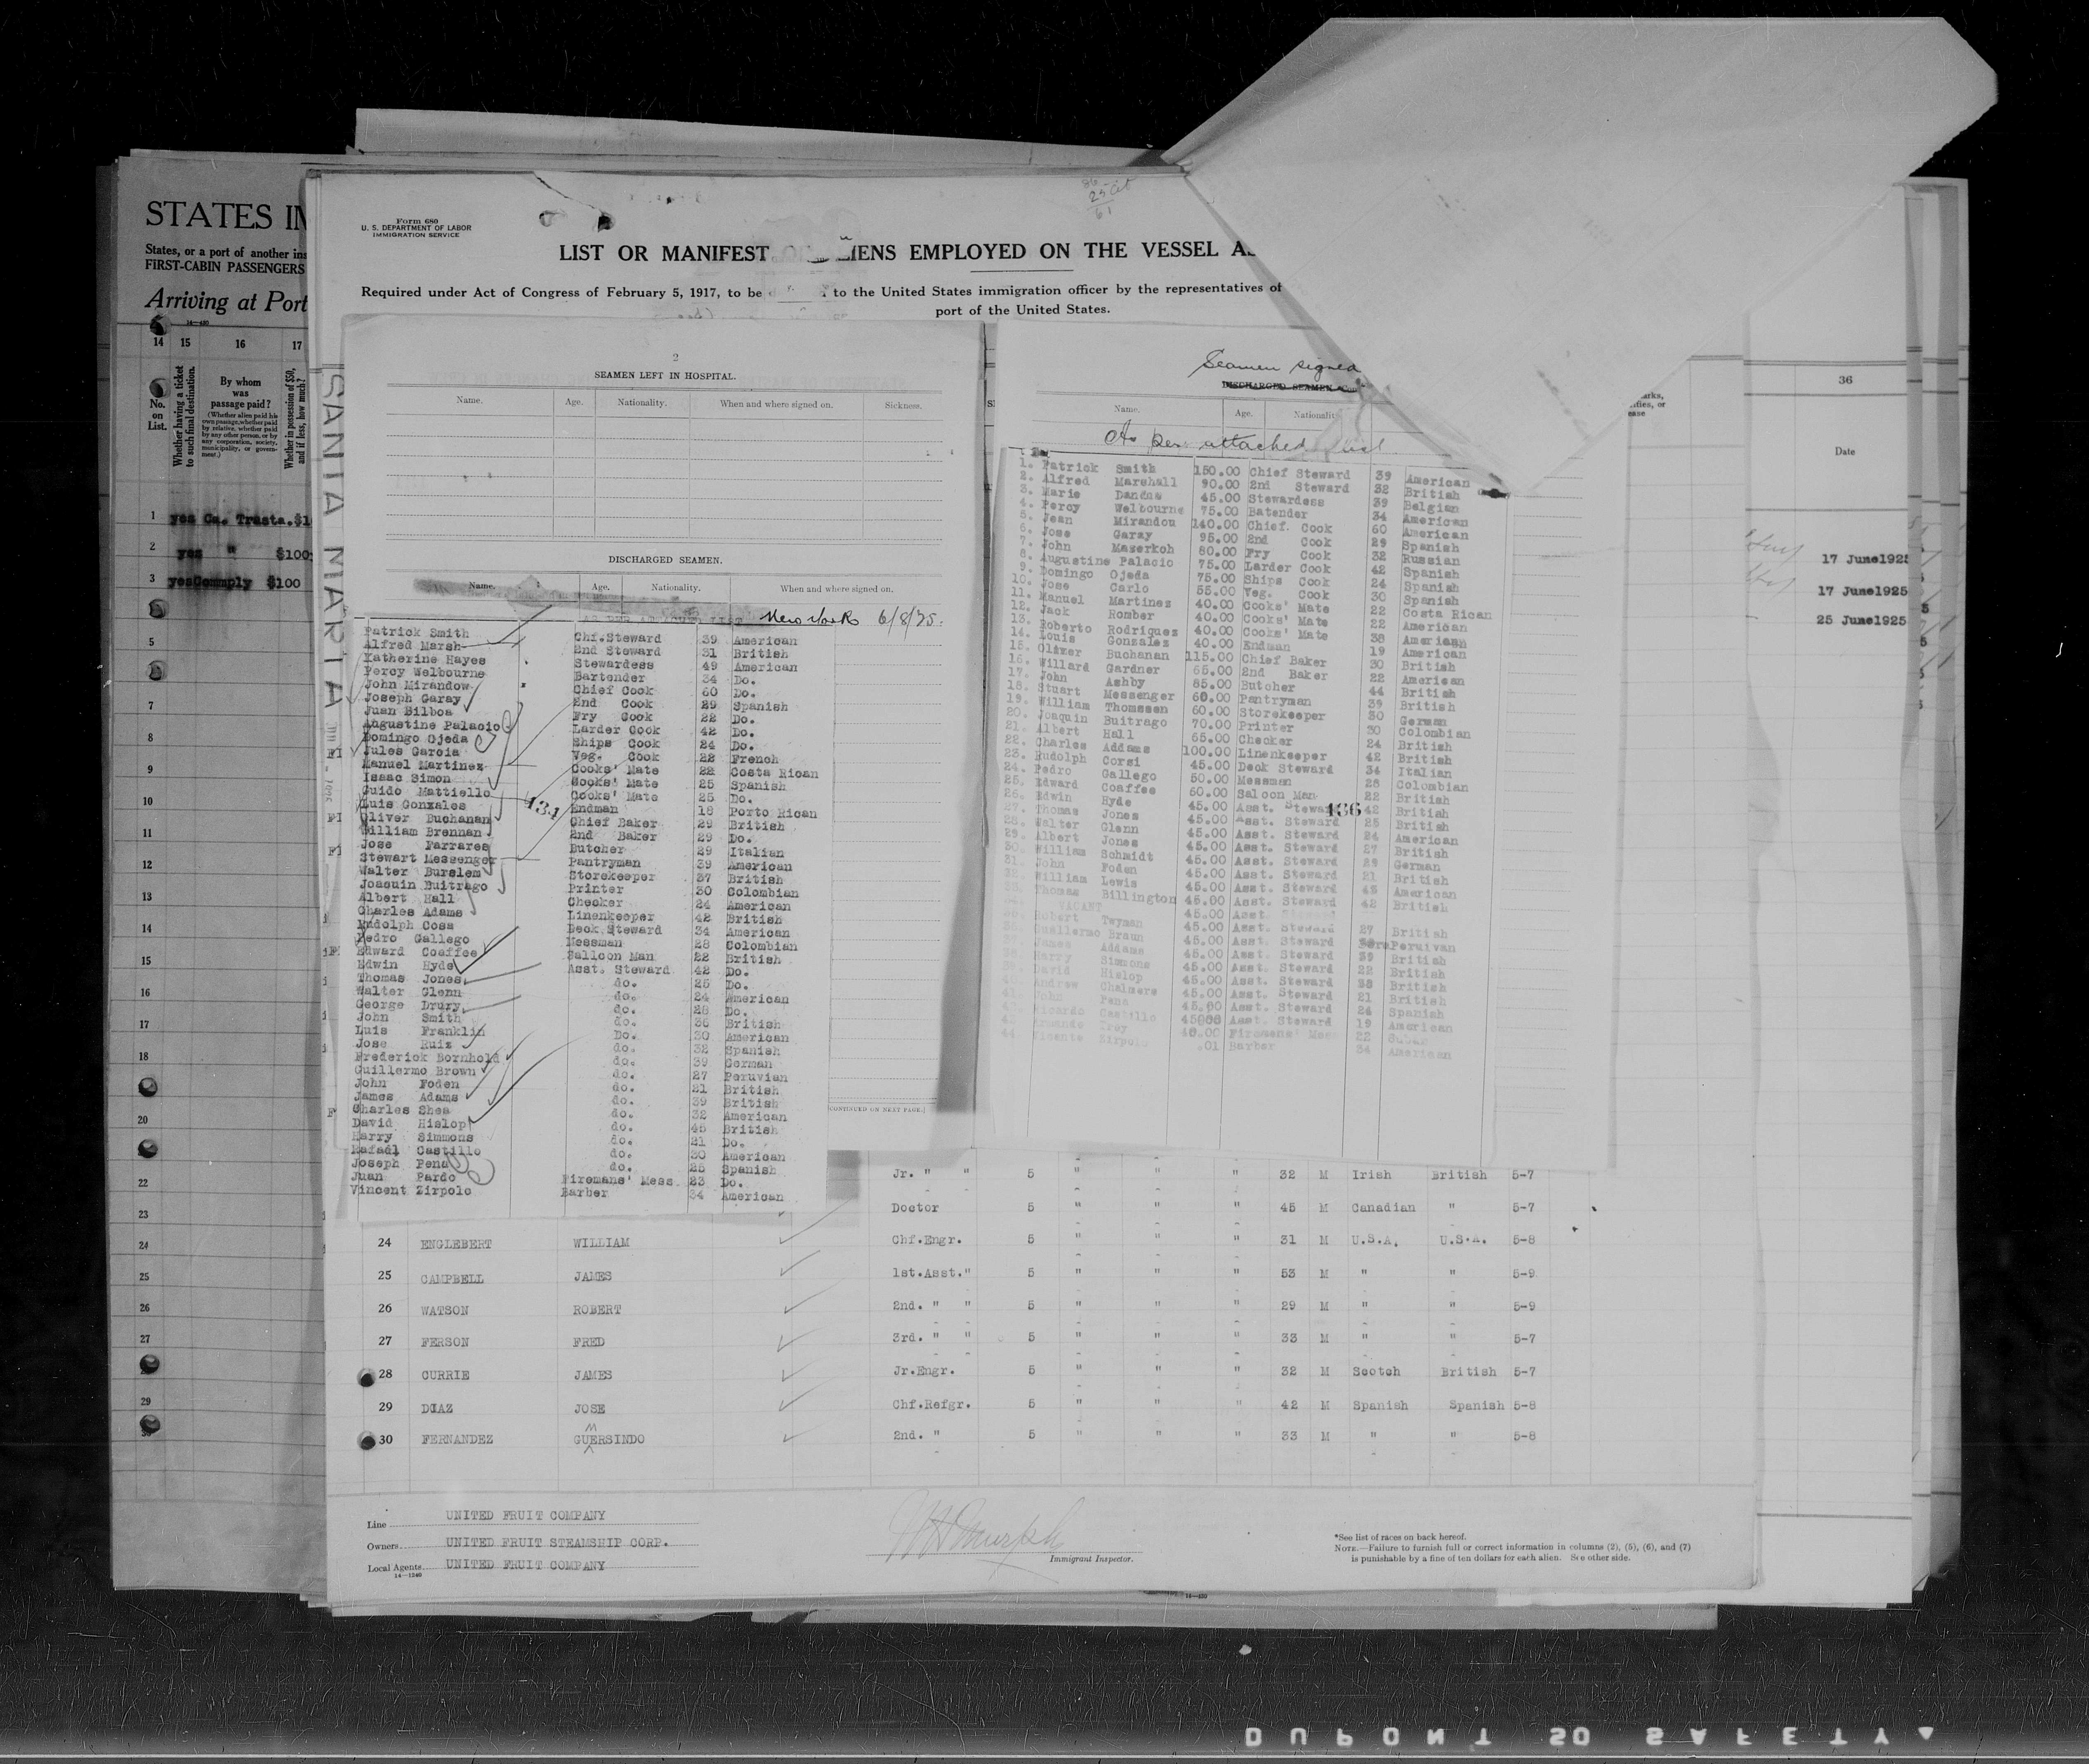 STATES IN
States, or a port of another ins
FIRST-CABIN PASSENGERS
Arriving at Port
14—430
14 15 16 17
No. on List.
Whether having a ticket to such final destination.
By whom was passage paid?
(Whether alien paid his own passage, whether paid by relative, whether paid by any other person, or by any corporation, society, municipality, or government.)
Whether in possession of $50, and if less, how much?
1 yes Ca. Trasta. $1
2 yes " $100
3 yes Commply $100
5
7
8
9
10
11
12
13
14
15
16
17
18
20
22
23
24
25
26
27
29
Form 680
U. S. DEPARTMENT OF LABOR
IMMIGRATION SERVICE
LIST OR MANIFEST
IENS EMPLOYED ON THE VESSEL AS
Required under Act of Congress of February 5, 1917, to be
to the United States immigration officer by the representatives of
port of the United States.
SANTA MARTA
2
SEAMEN LEFT IN HOSPITAL.
Name. Age. Nationality. When and where signed on. Sickness.
DISCHARGED SEAMEN.
Name. Age. Nationality. When and where signed on.
AS PER ATTACHED LIST New York 6/8/25.
Patrick Smith Chf.Steward 39 American
Alfred Marsh 2nd Steward 31 British
Katherine Hayes Stewardess 49 American
Percy Welbourne Bartender 34 Do.
John Mirandow Chief Cook 60 Do.
Joseph Garay 2nd Cook 29 Spanish
Juan Bilboa Fry Cook 22 Do.
Augustine Palacio Larder Cook 42 Do.
Domingo Ojeda Ships Cook 24 Do.
Jules Garcia Veg. Cook 22 French
Manuel Martinez Cooks' Mate 22 Costa Rican
Isaac Simon Cooks' Mate 25 Spanish
Guido Mattiello Cooks' Mate 25 Do.
Luis Gonzales Endman 18 Porto Rican
Oliver Buchanan Chief Baker 29 British
William Brennan 2nd Baker 29 Do.
Jose Farrares Butcher 29 Italian
Stewart Messenger Pantryman 39 American
Walter Burslem Storekeeper 37 British
Joaquin Buitrago Printer 30 Colombian
Albert Hall Checker 24 American
Charles Adams Linenkeeper 42 British
Rudolph Cosa Deck Steward 34 American
Pedro Gallego Messman 28 Colombian
Edward Coaffee Salloon Man 22 British
Edwin Hyde Asst. Steward 42 Do.
Thomas Jones do. 25 Do.
Walter Glenn do. 24 American
George Drury do. 28 Do.
John Smith do. 36 British
Luis Franklin Do. 30 American
Jose Ruiz do. 32 Spanish
Frederick Bornhold do. 39 German
Guillermo Brown do. 27 Peruvian
John Foden do. 21 British
James Adams do. 39 British
Charles Shea do. 32 American
David Hislop do. 45 British
Harry Simmons do. 21 Do.
Rafael Castillo do. 30 American
Joseph Pena do. 25 Spanish
Juan Pardo Firemans' Mess. 23 Do.
Vincent Zirpolo Barber 34 American
131
[CONTINUED ON NEXT PAGE.]
Seamen signed
DISCHARGED SEAMEN
Name. Age. Nationality
As per attached list
1. Patrick Smith 150.00 Chief Steward 39 American
2. Alfred Marshall 90.00 2nd Steward 32 British
3. Marie Dandne 45.00 Stewardess 39 Belgian
4. Percy Welbourne 75.00 Batender 34 American
5. Jean Mirandou 140.00 Chief. Cook 60 American
6. Jose Garay 95.00 2nd Cook 29 Spanish
7. John Maserkoh 80.00 Fry Cook 32 Russian
8. Augustine Palacio 75.00 Larder Cook 42 Spanish
9. Domingo Ojeda 75.00 Ships Cook 24 Spanish
10. Jose Carlo 55.00 Veg. Cook 30 Spanish
11. Manuel Martinez 40.00 Cooks' Mate 22 Costa Rican
12. Jack Romber 40.00 Cooks' Mate 22 American
13. Roberto Rodrigues 40.00 Cooks' Mate 38 American
14. Louis Gonzales 40.00 Endman 19 American
15. Oliver Buchanan 115.00 Chief Baker 30 British
16. Willard Gardner 65.00 2nd Baker 22 American
17. John Ashby 85.00 Butcher 44 British
18. Stuart Messenger 60.00 Pantryman 39 British
19. William Thomssen 60.00 Storekeeper 30 German
20. Joaquin Buitrago 70.00 Printer 30 Colombian
21. Albert Hall 65.00 Checker 24 British
22. Charles Addams 100.00 Linenkeeper 42 British
23. Rudolph Corsi 45.00 Deck Steward 34 Italian
24. Pedro Gallego 50.00 Messman 28 Colombian
25. Edward Coaffee 60.00 Saloon Man 22 British
26. Edwin Hyde 45.00 Asst. Steward 42 British
27. Thomas Jones 45.00 Asst. Steward 25 British
28. Walter Glenn 45.00 Asst. Steward 24 American
29. Albert Jones 45.00 Asst. Steward 27 British
30. William Schmidt 45.00 Asst. Steward 29 German
31. John Foden 45.00 Asst. Steward 21 British
32. William Lewis 45.00 Asst. Steward 45 American
33. Thomas Billington 45.00 Asst. Steward 42 British
34. VACANT 45.00 Asst. Steward
35. Robert Twyman 45.00 Asst. Steward 27 British
36. Guallermo Braun 45.00 Asst. Steward Peruivan
37. James Addams 45.00 Asst. Steward 39 British
38. Harry Simmons 45.00 Asst. Steward 22 British
39. David Hislop 45.00 Asst. Steward 38 British
40. Andrew Chalmers 45.00 Asst. Steward 21 British
41. John Pena 45.00 Asst. Steward 24 Spanish
42. Ricardo Castillo 45000 Asst. Steward 19 American
43. Armando Troy 40.00 Firemens' Mess 22 Cuban
44. Vicente Zirpolo .01 Barber 34 American
136
36
Date
17 June1925
17 June1925
25 June1925
Jr. " " 5 " " " 32 M Irish British 5-7
Doctor 5 " " " 45 M Canadian " 5-7
24 ENGLEBERT WILLIAM Chf.Engr. 5 " " " 31 M U.S.A. U.S.A. 5-8
25 CAMPBELL JAMES 1st.Asst." 5 " " " 53 M " " 5-9
26 WATSON ROBERT 2nd. " " 5 " " " 29 M " " 5-9
27 FERSON FRED 3rd. " " 5 " " " 33 M " " 5-7
28 CURRIE JAMES Jr.Engr. 5 " " " 32 M Scotch British 5-7
29 DIAZ JOSE Chf.Refgr. 5 " " " 42 M Spanish Spanish 5-8
30 FERNANDEZ GUMERSINDO 2nd. " 5 " " " 33 M " " 5-8
Line UNITED FRUIT COMPANY
Owners UNITED FRUIT STEAMSHIP CORP.
Local Agents UNITED FRUIT COMPANY
14—1240
Immigrant Inspector.
*See list of races on back hereof.
NOTE.—Failure to furnish full or correct information in columns (2), (5), (6), and (7)
is punishable by a fine of ten dollars for each alien. See other side.
14—430
DUPONT 50 SAFETY